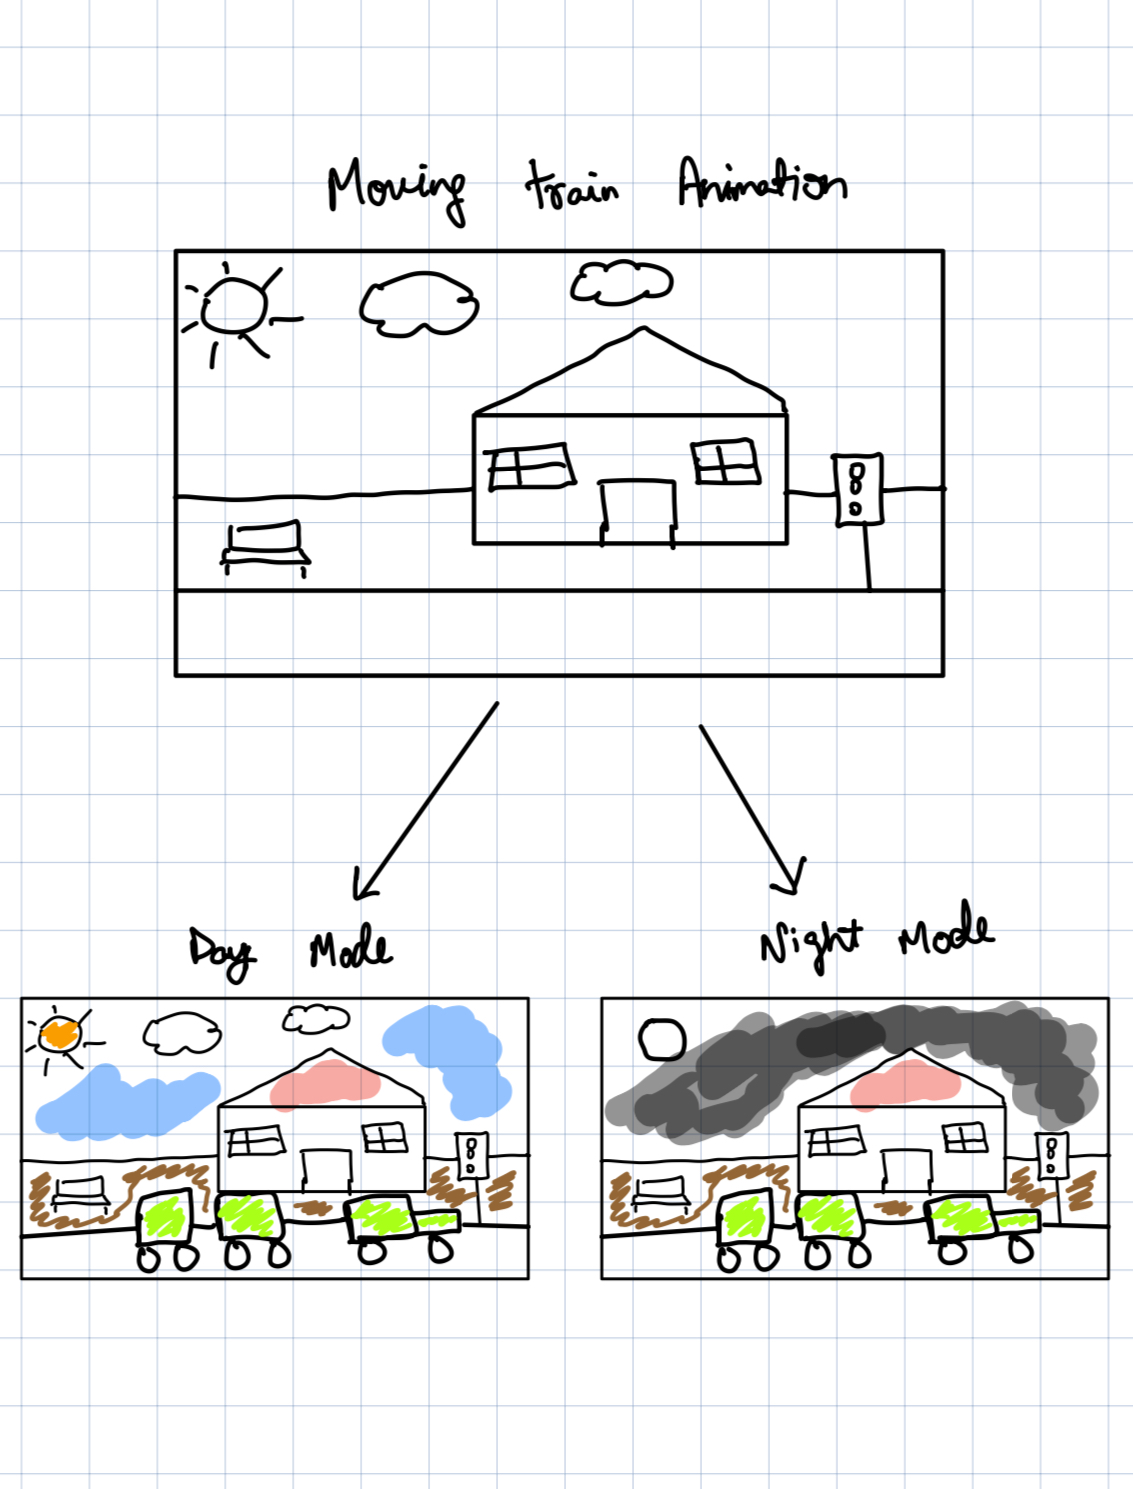 Moving train Animation
Day Mode
Night Mode